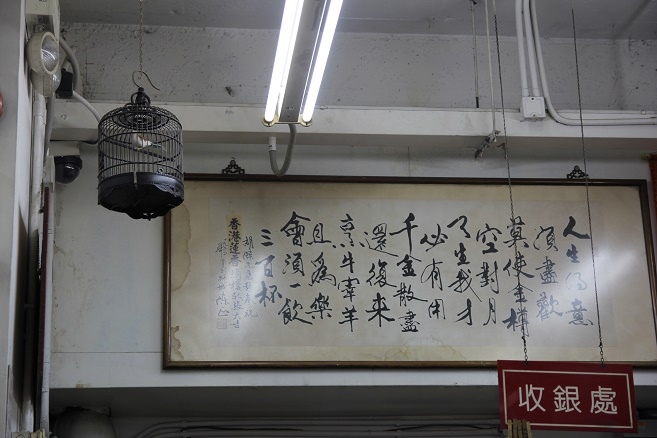 人生得意
須盡歡
莫使金樽
空對月
天生我才
必有用
千金散盡
還復來
烹牛宰羊
且為樂
會須一飲
三百杯
香港蓮香
收銀處